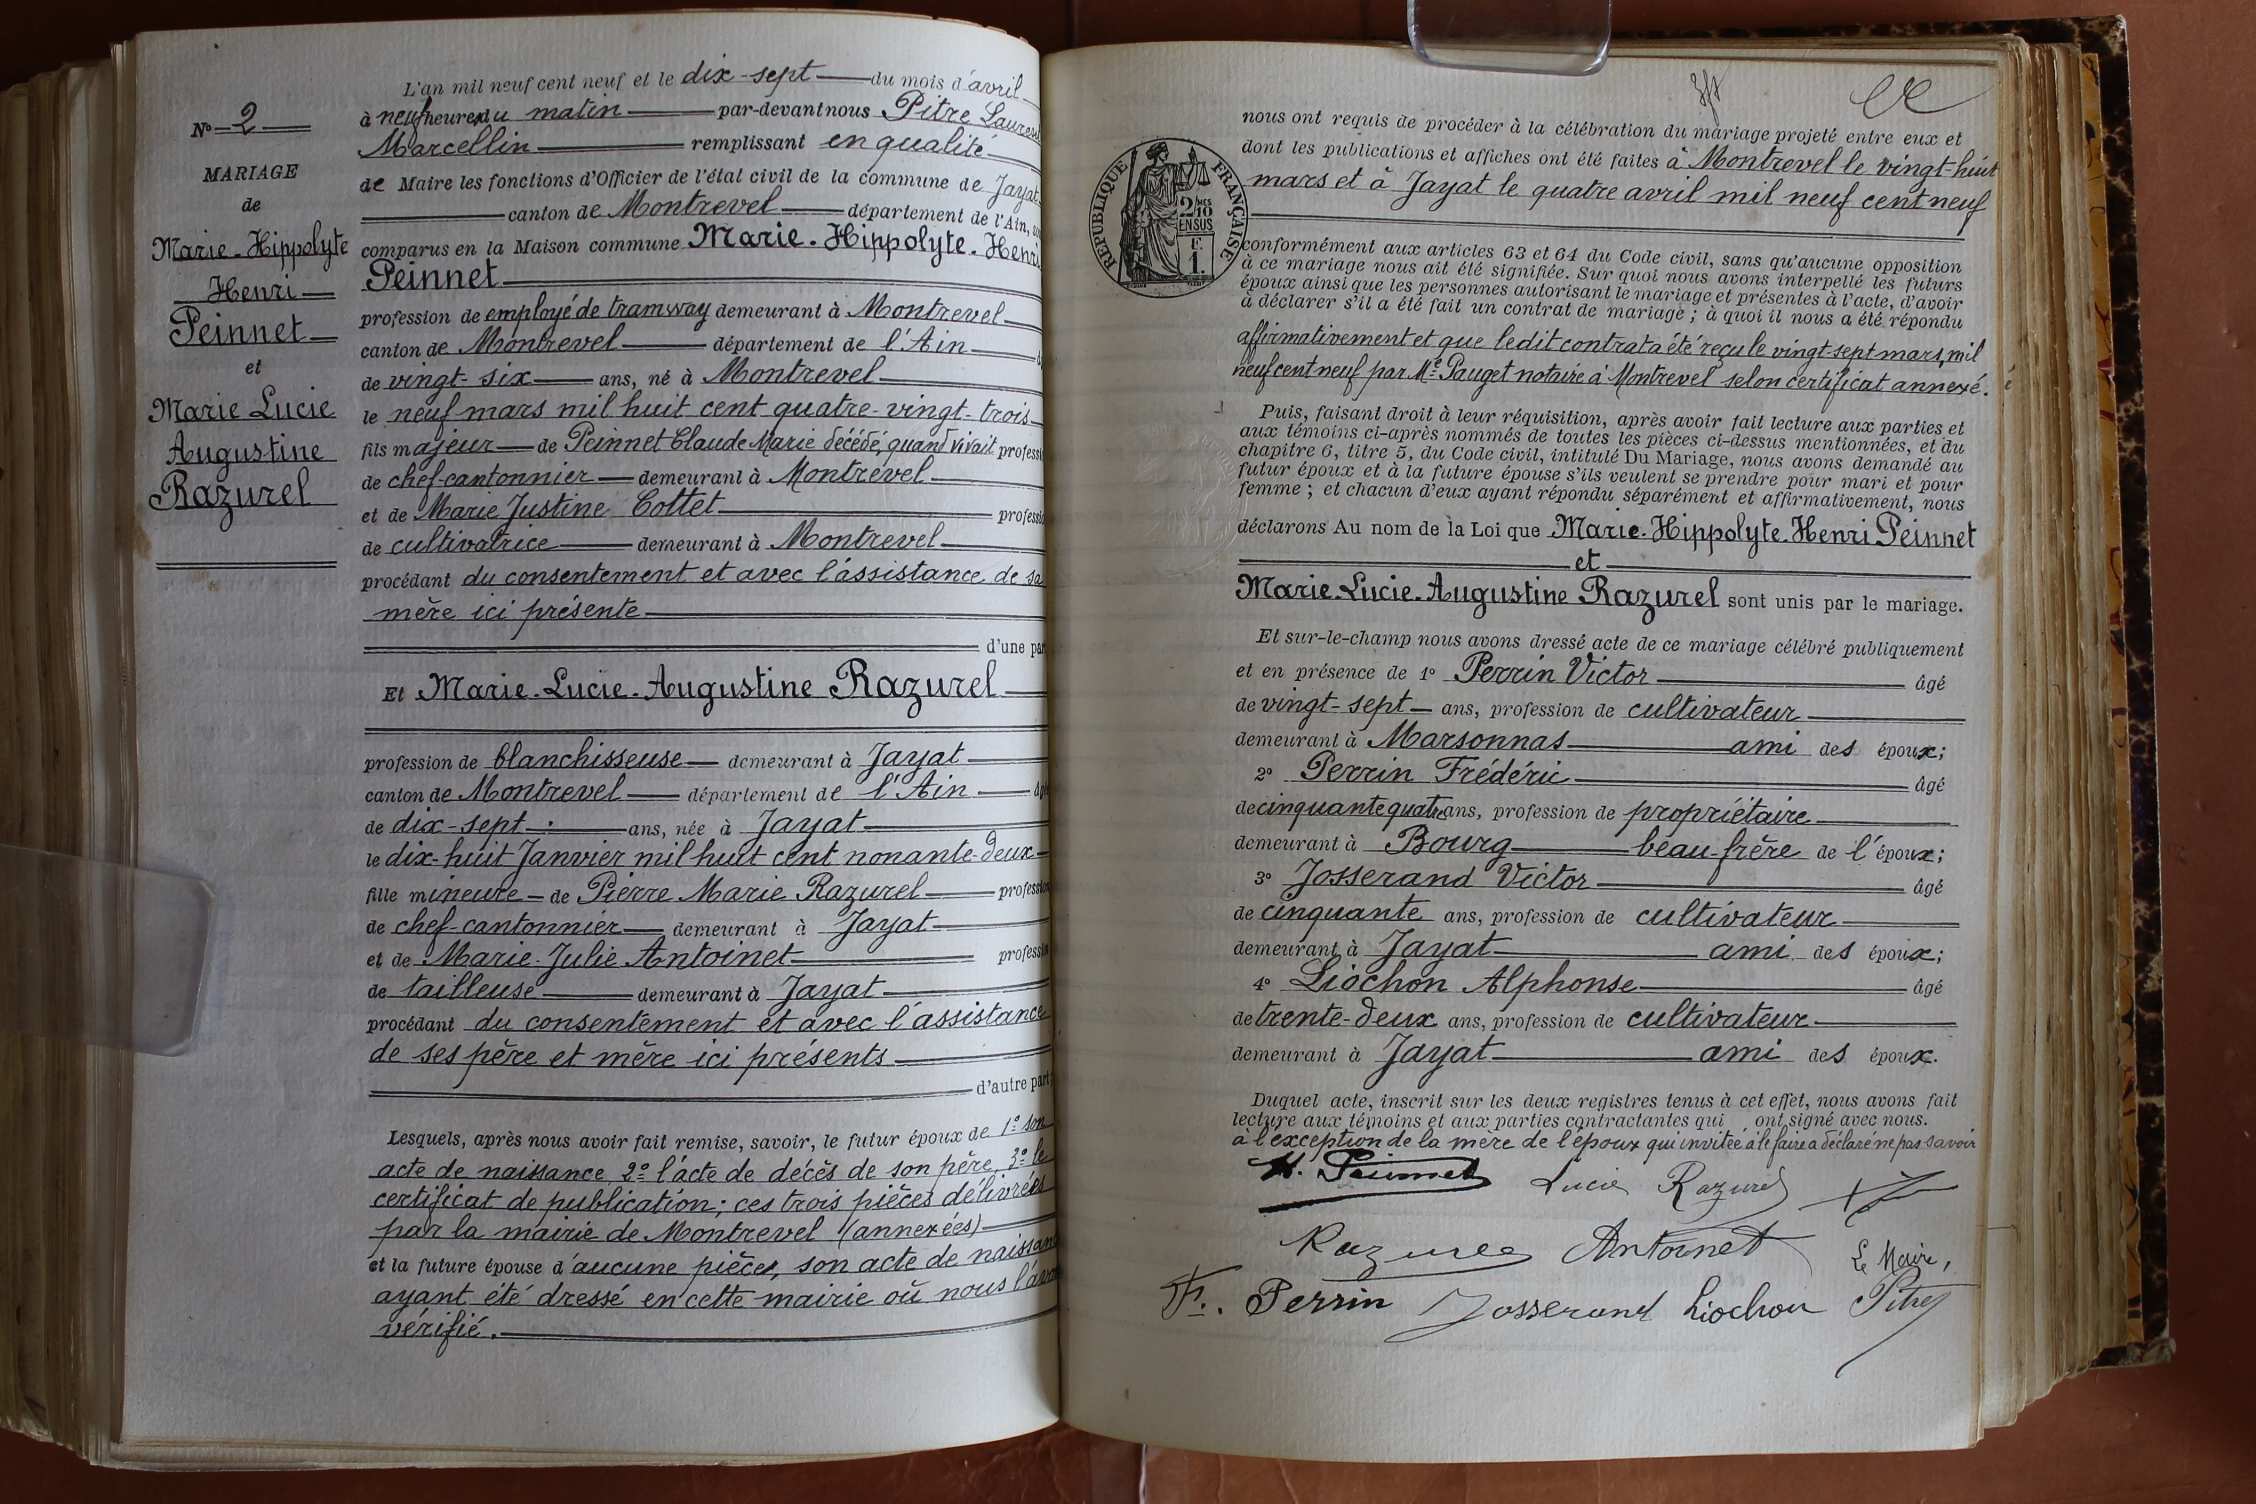 N° 2
MARIAGE
de
Marie-Hippolyte
Henri
Peinnet
et
Marie Lucie
Augustine
Razurel
L'an mil neuf cent neuf et le dix-sept du mois d'avril
à neuf heures du matin par-devant nous Pitre Laurent
Marcellin remplissant en qualité
de Maire les fonctions d'Officier de l'état civil de la commune de Jayat
canton de Montrevel département de l'Ain,
comparus en la Maison commune Marie-Hippolyte-Henri
Peinnet
profession de employé de tramway demeurant à Montrevel
canton de Montrevel département de l'Ain
de vingt-six ans, né à Montrevel
le neuf mars mil huit cent quatre-vingt-trois
fils majeur de Peinnet Claude Marie décédé, quand vivait profession
de chef-cantonnier demeurant à Montrevel
et de Marie Justine Cottet profession
de cultivatrice demeurant à Montrevel
procédant du consentement et avec l'assistance de sa
mère ici présente
d'une part
Et Marie-Lucie-Augustine Razurel
profession de blanchisseuse demeurant à Jayat
canton de Montrevel département de l'Ain âgée
de dix-sept ans, née à Jayat
le dix-huit Janvier mil huit cent nonante-deux
fille mineure de Pierre Marie Razurel profession
de chef-cantonnier demeurant à Jayat
et de Marie-Julie Antoinet profession
de tailleuse demeurant à Jayat
procédant du consentement et avec l'assistance
de ses père et mère ici présents
d'autre part
Lesquels, après nous avoir fait remise, savoir, le futur époux de 1° son
acte de naissance, 2° l'acte de décès de son père, 3° le
certificat de publication; ces trois pièces délivrées
par la mairie de Montrevel (annexées)
et la future épouse d'aucune pièce, son acte de naissance
ayant été dressé en cette mairie où nous l'avons
vérifié.
RÉPUBLIQUE FRANÇAISE
2/10 EN SUS
F.
1.
nous ont requis de procéder à la célébration du mariage projeté entre eux et
dont les publications et affiches ont été faites à Montrevel le vingt-huit
mars et à Jayat le quatre avril mil neuf cent neuf
conformément aux articles 63 et 64 du Code civil, sans qu'aucune opposition
à ce mariage nous ait été signifiée. Sur quoi nous avons interpellé les futurs
époux ainsi que les personnes autorisant le mariage et présentes à l'acte, d'avoir
à déclarer s'il a été fait un contrat de mariage; à quoi il nous a été répondu
affirmativement et que ledit contrat a été reçu le vingt-sept mars, mil
neuf cent neuf par Me Pauget notaire à Montrevel selon certificat annexé.
Puis, faisant droit à leur réquisition, après avoir fait lecture aux parties et
aux témoins ci-après nommés de toutes les pièces ci-dessus mentionnées, et du
chapitre 6, titre 5, du Code civil, intitulé Du Mariage, nous avons demandé au
futur époux et à la future épouse s'ils veulent se prendre pour mari et pour
femme; et chacun d'eux ayant répondu séparément et affirmativement, nous
déclarons Au nom de la Loi que Marie-Hippolyte-Henri Peinnet
et
Marie-Lucie-Augustine Razurel sont unis par le mariage.
Et sur-le-champ nous avons dressé acte de ce mariage célébré publiquement
et en présence de 1° Perrin Victor âgé
de vingt-sept ans, profession de cultivateur
demeurant à Marsonnas ami des époux;
2° Perrin Frédéric âgé
de cinquante quatre ans, profession de propriétaire
demeurant à Bourg beau-frère de l'époux;
3° Josserand Victor âgé
de cinquante ans, profession de cultivateur
demeurant à Jayat ami des époux;
4° Liochon Alphonse âgé
de trente-deux ans, profession de cultivateur
demeurant à Jayat ami des époux.
Duquel acte, inscrit sur les deux registres tenus à cet effet, nous avons fait
lecture aux témoins et aux parties contractantes qui ont signé avec nous.
à l'exception de la mère de l'époux qui invitée à le faire a déclaré ne pas savoir
H. Peinnet Lucie Razurel
Razurel Antoinet Le Maire,
Fr. Perrin Josserand Liochon Pitre